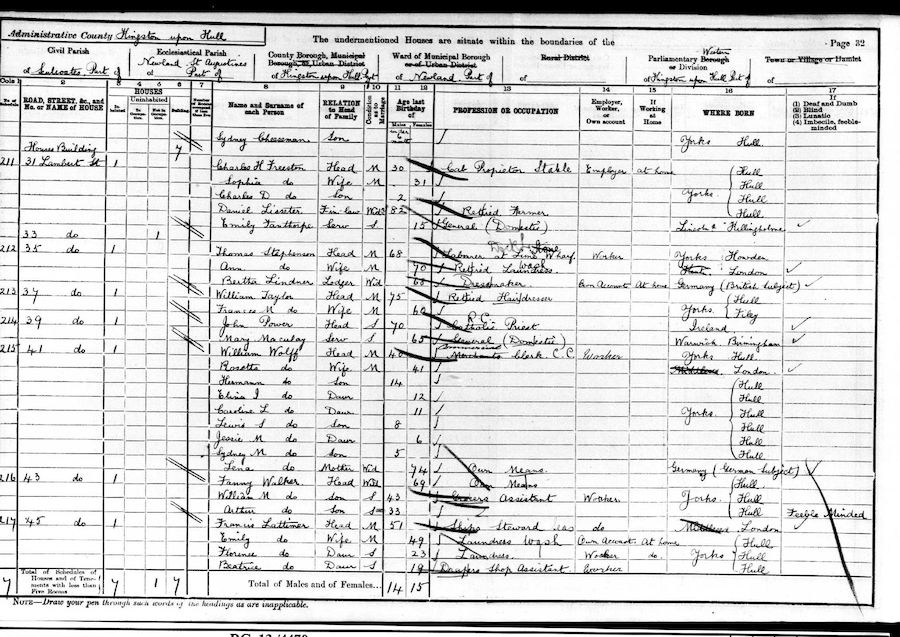 Administrative County Kingston upon Hull
The undermentioned Houses are situate within the boundaries of the
Page 32
Civil Parish
Ecclesiastical Parish
County Borough, Municipal Borough, or Urban District
Ward of Municipal Borough or of Urban District
Rural District
Parliamentary Borough or Division
Town or Village or Hamlet
of Sculcoates Part of
Newland St Augustines Part of
of Kingston upon Hull Pt of
of Newland Part of
of
Western
Kingston upon Hull Pt of
of
Cols 1 2 3 4 5 6 7 8 9 10 11 12 13 14 15 16 17
ROAD, STREET, &c., and No. or NAME of HOUSE
HOUSES
Inhabited
Uninhabited
In Occupation
Not in Occupation
Building
Name and Surname of each Person
RELATION to Head of Family
Condition as to Marriage
Age last Birthday of
Males Females
PROFESSION OR OCCUPATION
Employer, Worker, or Own account
If Working at Home
WHERE BORN
If (1) Deaf and Dumb (2) Blind (3) Lunatic (4) Imbecile, feeble-minded
Sydney Cheeseman Son Yorks Hull
Houses Building 7
211 31 Lambert St 1 Charles H Freeston Head M 30 Cab Proprietor Stable Employer at home Hull
Sophia do Wife M 31 Hull
Charles D do Son 2 Yorks Hull
Daniel Lissiter Fin law Wid 82 Retired Farmer Hull
Emily Fanthorpe Serv S 15 General (Domestic) Lincoln
33 do 1
212 35 do 1 Thomas Stephenson Head M 68 Labourer at Lime Wharf Worker Yorks Howden
Ann do Wife M 70 Retired Laundress wash London
Bertha Lindner Lodger Wid 68 Dressmaker Own Account At home Germany (British Subject)
213 37 do 1 William Taylor Head M 75 Retired Hairdresser Hull
Frances M do Wife M 62 Yorks Filey
214 39 do 1 John Power Head S 70 R.C. Catholic Priest Ireland
Mary Maculay Serv S 65 General (Domestic) Warwick Birmingham
215 41 do 1 William Wolff Head M 40 Commission Merchants Clerk C.C. Worker Yorks Hull
Rosetta do Wife M 41 Middlesex London
Hermann do Son 14 Hull
Elvina I do Daur 12 Hull
Caroline L do Daur 11 Yorks Hull
Lewis S do Son 8 Hull
Jessie M do Daur 6 Hull
Sydney M do Son 5 Hull
Lena do Mother Wid 74 Own Means Germany (German Subject)
216 43 do 1 Fanny Walker Head Wid 69 Own Means Hull
William M do Son S 43 Grocers Assistant Worker Yorks Hull
Arthur do Son S 33 Hull Feeble Minded
217 45 do 1 Francis Lattimer Head M 51 Ships Steward sea do Middlesex London
Emily do Wife M 49 Laundress Wash Own Account At home Hull
Florence do Daur S 23 Laundress Worker do Yorks Hull
Beatrice do Daur S 19 Drapers Shop Assistant Worker Hull
7 Total of Schedules of Houses and of Tenements with less than Five Rooms 7 1 7
Total of Males and of Females... 14 15
NOTE—Draw your pen through such words of the headings as are inapplicable.